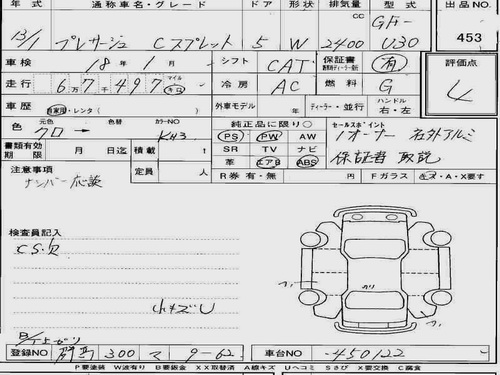 年 式 通称車名・グレード ドア 形状 排気量 型 式 出品 NO.
CC
GF-
13/1 プレサージュ C スプレット 5 W 2400 U30
453
車検 18 年 1 月 シフト CAT 保証書 有
評価点
4
走行 6万7千497 マイル キロ 冷房 AC 燃料 G
車歴 自家用・レンタ ( ) 外車モデル 年 ディーラー・並行 ハンドル 右・左
色 元色 クロ → 色替 カラーNO KH3
純正品に限り○
PS PW AW
SR TV ナビ
革 エアB ABS
セールスポイント
1オーナー 社外アルミ
保証書 取説
書類有効期限 月 日迄 積載 t
定員 人
R券 有・無 Fガラス キズ・A・X要す
注意事項
ナンバー応談
検査員記入
C.S.欠
小キズU
カリ
登録NO 300 マ 9-62 車台NO -450122
P要塗装 W波有り B要鈑金 XX取替済 A線キズ Uヘコミ Sさび X要交換 C腐食